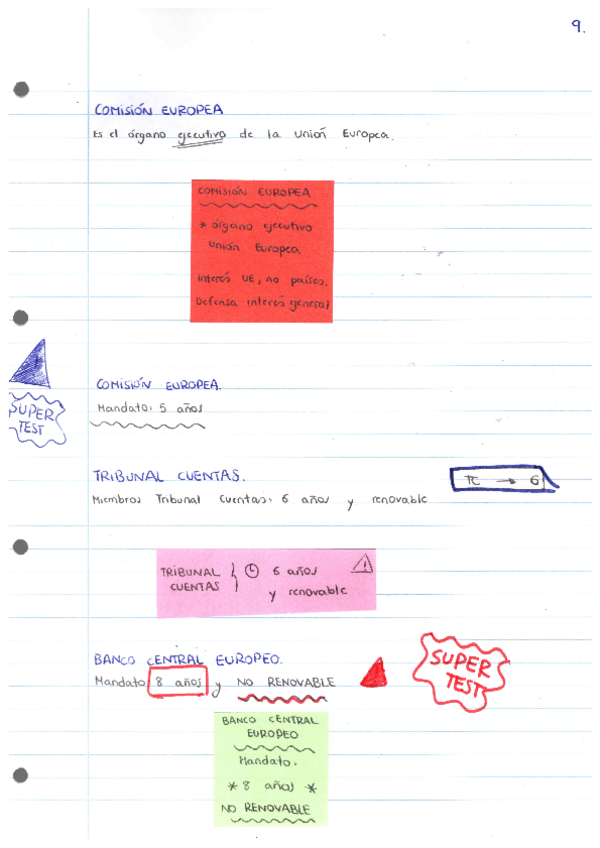 9.
COMISIÓN EUROPEA
Es el órgano ejecutivo de la Unión Europea.
COMISIÓN EUROPEA
* órgano ejecutivo
Unión Europea
Interés UE, no países.
Defensa interés general
COMISIÓN EUROPEA.
SUPER
TEST
Mandato: 5 años
TRIBUNAL CUENTAS.
TC → 6
Miembros Tribunal Cuentas: 6 años y renovable
TRIBUNAL
CUENTAS
6 años
y renovable
BANCO CENTRAL EUROPEO.
Mandato 8 años y NO RENOVABLE
SUPER
TEST
BANCO CENTRAL
EUROPEO
Mandato.
* 8 años *
NO RENOVABLE